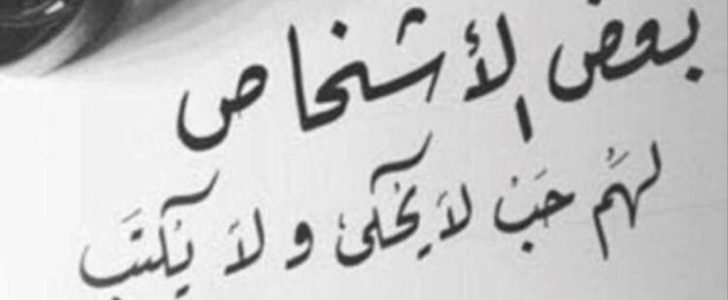 بعض الأشخاص
لهُم حَبْ لاَ يُحْكىٰ و لاَ يُكتَب